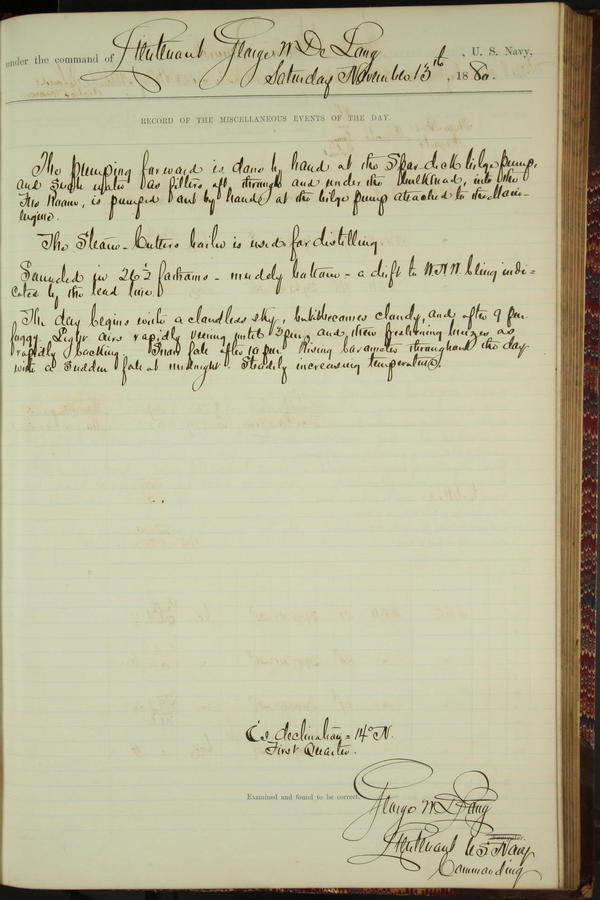 under the command of Lieutenant George W. De Long, U. S. Navy,
Saturday November 13th, 1880.
RECORD OF THE MISCELLANEOUS EVENTS OF THE DAY.
The pumping forward is done by hand at the Spar deck bilge pump,
and such water as filters aft through and under the bulkhead, into the
Fire Room, is pumped out by hand at the bilge pump attached to the Main-
Engine.
The Steam-Cutters boiler is used for distilling
Sounded in 26½ fathoms - muddy bottom - a drift to W.N.W. being indi=
cated by the lead line.
The day begins with a cloudless sky, but it becomes cloudy, and after 9 p.m.
foggy. Light airs rapidly veering until 3 p.m. and then freshening breezes as
rapidly backing. Snow fall after 10 p.m. Rising barometer throughout the day
with a sudden fall at midnight. Steadily increasing temperature.
☾'s declination = 14° N.
First Quarter.
Examined and found to be correct.
George W. De Long
Lieutenant U.S. Navy
Commanding